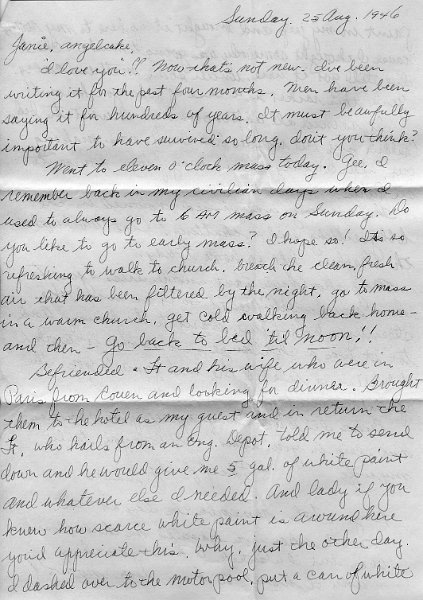 Sunday. 25 Aug. 1946
Janie, angelcake,
"I love you"!! Now that's not new. I've been
writing it for the past four months. Men have been
saying it for hundreds of years. It must be awfully
important to have survived so long, don't you think?
Went to eleven o'clock mass today. Gee, I
remember back in my civilian days when I
used to always go to 6 AM mass on Sunday. Do
you like to go to early mass? I hope so! It's so
refreshing to walk to church, breath the clean, fresh
air that has been filtered by the night, go to mass
in a warm church, get cold walking back home-
and then - go back to bed 'til noon!!
Befriended a Lt and his wife who were in
Paris from and looking for dinner. Brought
them to the hotel as my guest and in return the
Lt, who hails from an Eng. Depot, told me to send
down and he would give me 5 gal. of white paint
and whatever else I needed. And lady if you
knew how scarce white paint is around here
you'd appreciate this. Why, just the other day
I dashed over to the motorpool, put a can of white